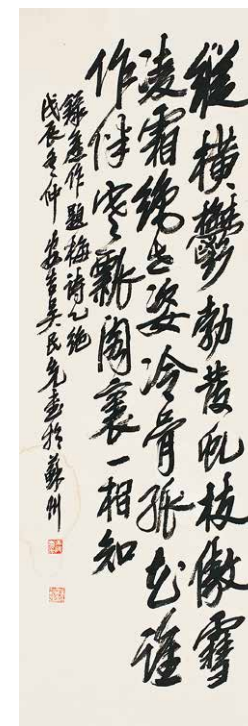 縱橫鬱勃發虬枝傲雪
凌霜絕世姿冷骨孤花誰
作伴寒瓢閣裏一相知
錄舊作題梅詩一絕
戊辰冬仲安吉吳民先書於蘇州